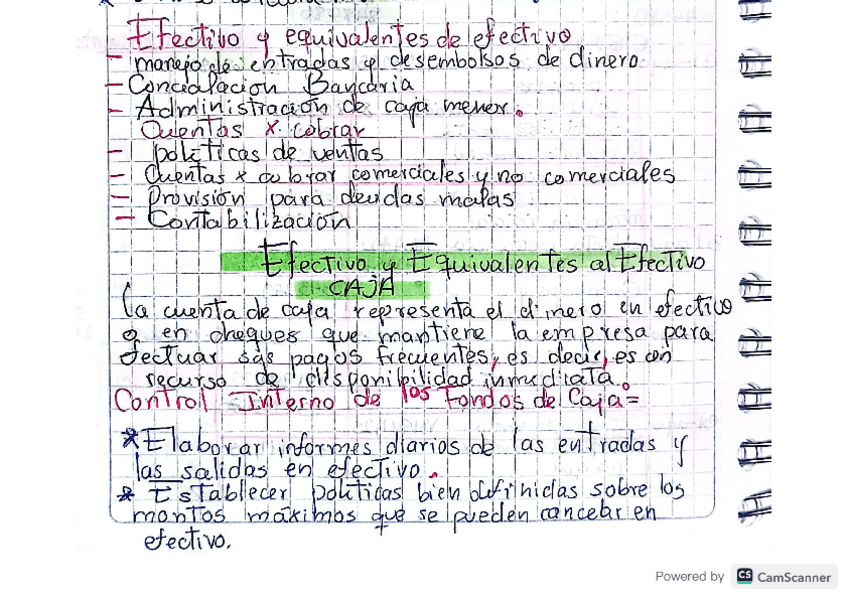 Efectivo y equivalentes de efectivo
- manejo de entradas y desembolsos de dinero
- Conciliación Bancaria
- Administración de caja menor.
Cuentas x cobrar
- políticas de ventas
- Cuentas x cobrar comerciales y no comerciales
- Provisión para deudas malas
- Contabilización
Efectivo y Equivalentes al Efectivo
CAJA
La cuenta de caja representa el dinero en efectivo
o en cheques que mantiene la empresa para
efectuar sus pagos frecuentes, es decir, es con
recurso de disponibilidad inmediata.
Control Interno de los Fondos de Caja=
* Elaborar informes diarios de las entradas y
las salidas en efectivo.
* Establecer políticas bien definidas sobre los
montos máximos que se pueden cancelar en
efectivo.
Powered by CS CamScanner